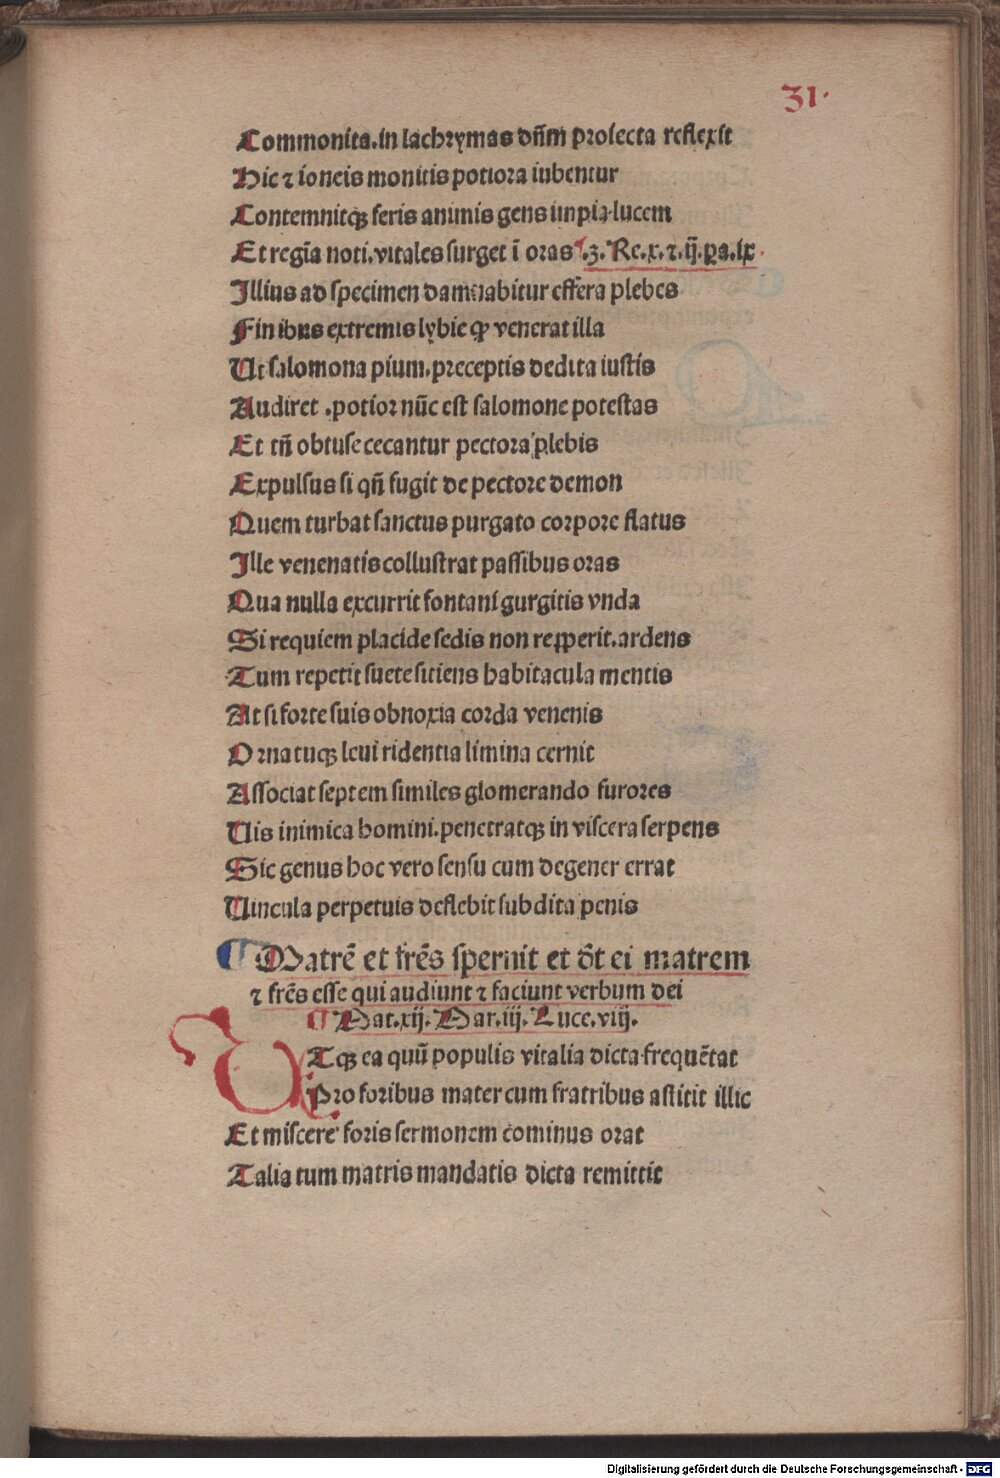 31.
Commonita.in lachrymas dñm proiecta reflexit
Hic ⁊ ioneis monitis potiora iubentur
Contemnitqꝫ feris animis gens impia lucem
Et regīa noti.vitales surget ī oras .3. Re.x.⁊.ij.pa.ix.
Illius ad specimen damnabitur effera plebes
Finibus extremis lybie ꝙ venerat illa
Ut salomona pium.preceptis dedita iustis
Audiret .potior nūc est salomone potestas
Et tñ obtuse cecantur pectora plebis
Expulsus si qñ fugit de pectore demon
Quem turbat sanctus purgato corpore flatus
Ille venenatis collustrat passibus oras
Qua nulla excurrit fontani gurgitis vnda
Si requiem placide sedis non repperit.ardens
Tum repetit suete sitiens habitacula mentis
At si forte suis obnoxia corda venenis
Ornatuqꝫ leui ridentia limina cernit
Associat septem similes glomerando furores
Uis inimica homini.penetratqꝫ in viscera serpens
Sic genus hoc vero sensu cum degener errat
Uincula perpetuis deflebit subdita penis
¶ Matrē et frēs spernit et dt̄ ei matrem
⁊ frēs esse qui audiunt ⁊ faciunt verbum dei
¶ Mat.xij. Mar.iij. Luce.viij.
UTqꝫ ea quū populis vitalia dicta frequētat
Pro foribus mater cum fratribus astitit illic
Et miscere foris sermonem cominus orat
Talia tum matris mandatis dicta remittit
Digitalisierung gefördert durch die Deutsche Forschungsgemeinschaft - DFG